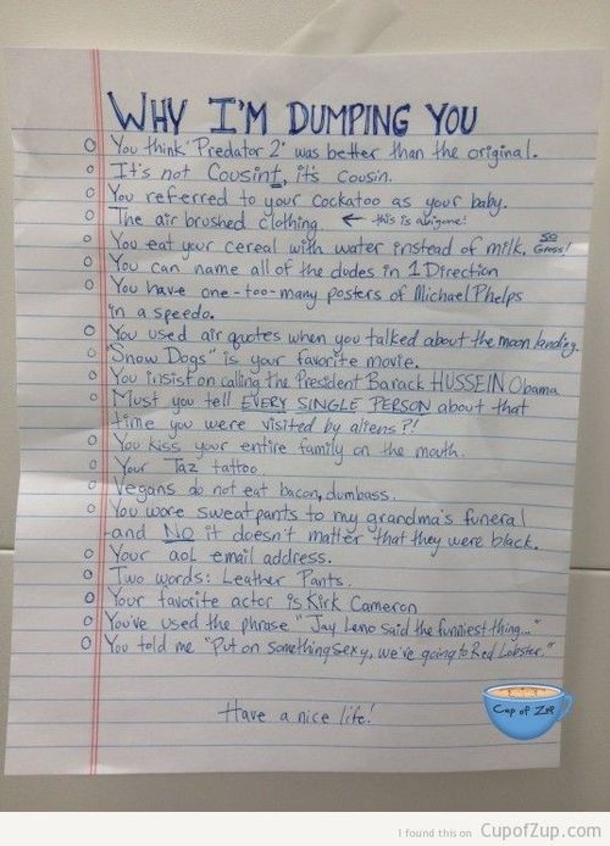 WHY I'M DUMPING YOU
You think "Predator 2" was better than the original.
It's not Cousint, it's cousin.
You referred to your cockatoo as your baby.
The air brushed clothing. ← this is a biggone!
You eat your cereal with water instead of milk. SO Gross!
You can name all of the dudes in 1 Direction
You have one-too-many posters of Michael Phelps
in a speedo.
You used air quotes when you talked about the moon landing.
"Snow Dogs" is your favorite movie.
You insist on calling the President Barack HUSSEIN Obama
Must you tell EVERY SINGLE PERSON about that
time you were visited by aliens?!
You kiss your entire family on the mouth.
Your Taz tattoo
Vegans do not eat bacon, dumbass.
You wore sweatpants to my grandma's funeral
-and NO it doesn't matter that they were black.
Your aol email address.
Two words: Leather Pants.
Your favorite actor is Kirk Cameron
You've used the phrase "Jay Leno said the funniest thing..."
You told me "Put on something sexy, we're going to Red Lobster."
Have a nice life!
Cup of Zup
I found this on CupofZup.com